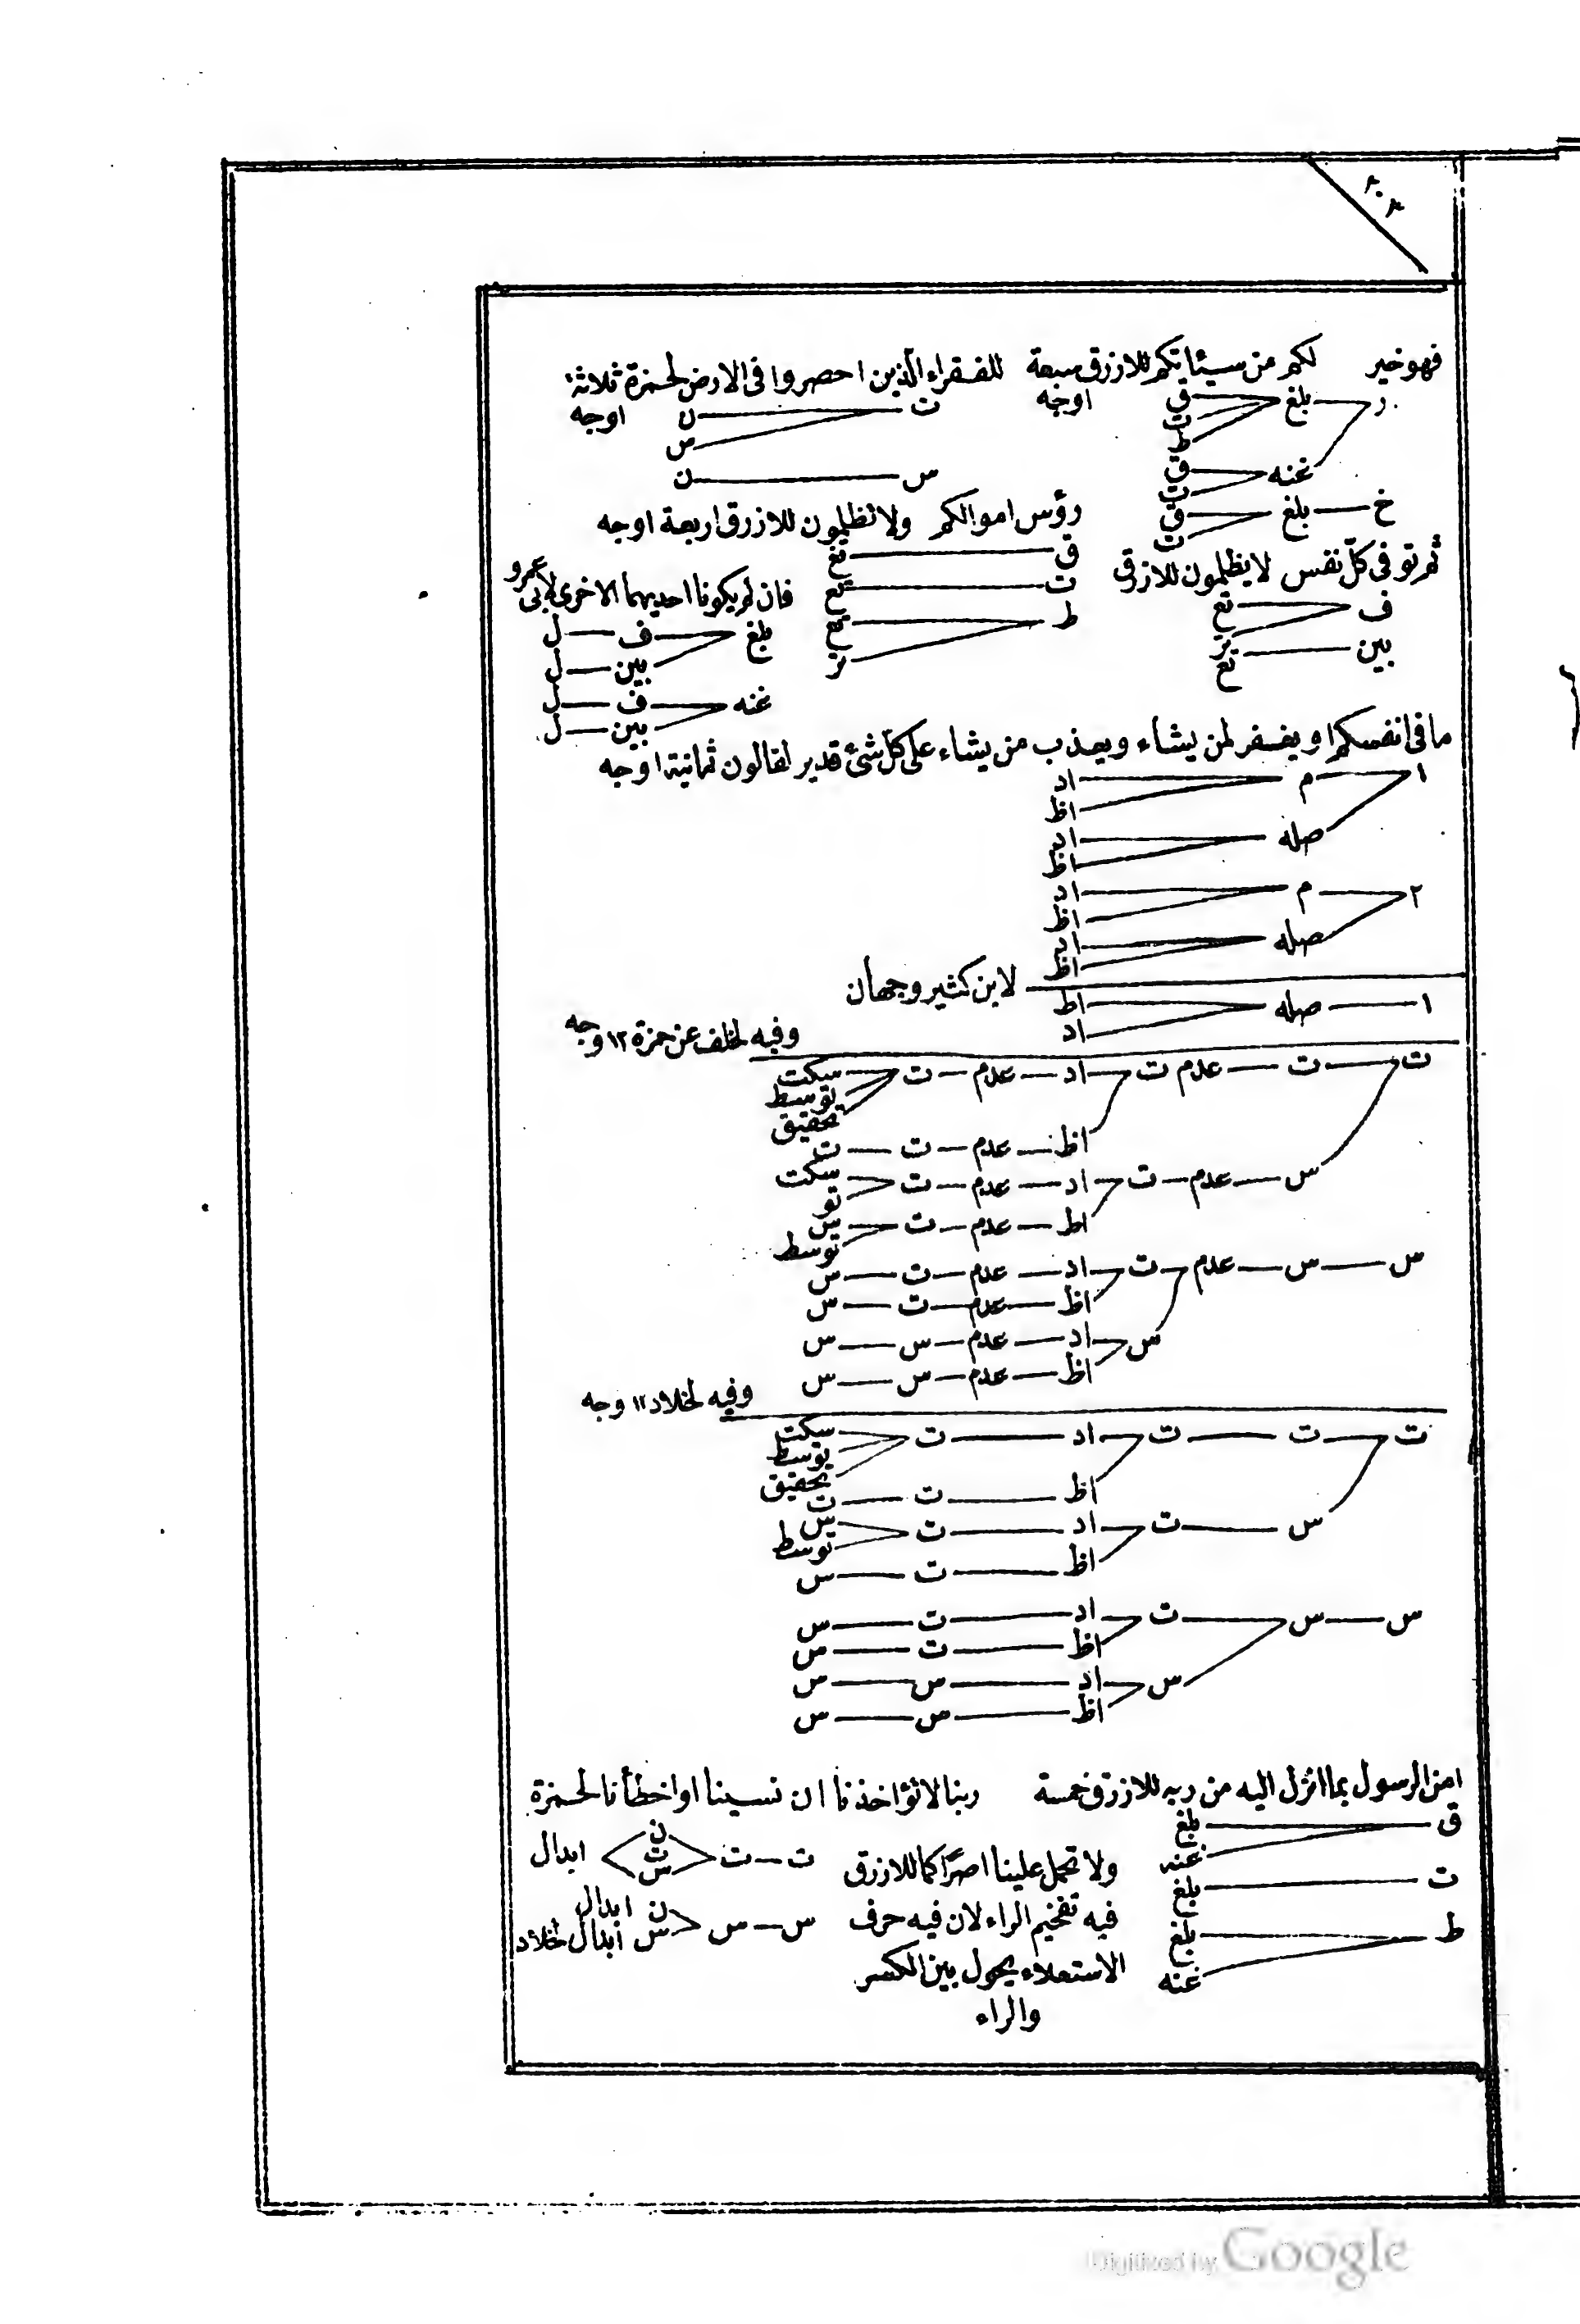 ٢٠٣
فهو خير لكم من سيئاتكم للازرق سبعة اوجه
ر — بلغ — ق
ت
ط
غنه — ق
ت
خ — بلغ — ق
ت
للفقراء الذين احصروا فى الارض لحمزة ثلاثة اوجه
ت — ن
س
س — ن
ثم توفى كلّ نفس لا يظلمون للازرق
ف — تغ
تر
بين — تغ
رؤس اموالكم ولا تظلمون للازرق اربعة اوجه
ق — تغ
ت — تغ
ط — تغ
تر
فان لم يكونا احديهما الاخرى لابى عمرو
بلغ — ف — ل
بين — ل
غنه — ف — ل
بين — ل
ما فى انفسكم او يغفر لمن يشاء ويعذب من يشاء على كل شئ قدير لقالون ثمانية اوجه
١ — م — اد
اظ
صله — اد
اظ
٢ — م — اد
اظ
صله — اد
اظ
لابن كثير وجهان
١ — صله — اظ
اد
وفيه لخلف عن حمزة ١٢ وجه
ت — ت — عدم ت — اد — عدم — ت — سكت
توسط
تحقيق
اظ — عدم — ت — ت
س — عدم — ت — اد — عدم — ت — سكت
تو
اظ — عدم — ت — س
توسط
س — س — عدم — ت — اد — عدم — ت — س
اظ — عدم — ت — س
س — اد — عدم — س — س
اظ — عدم — س — س
وفيه لخلاد ١٢ وجه
ت — ت — ت — اد — ت — سكت
توسط
تحقيق
اظ — ت — ت
س — ت — اد — ت — س
توسط
اظ — ت — س
س — س — ت — اد — ت — س
اظ — ت — س
س — اد — س — س
اظ — س — س
امن الرسول بما انزل اليه من ربه للازرق خمسة
ق — بلغ
غنه
ت — بلغ
ط — بلغ
غنه
ربنا لا تؤاخذنا ان نسينا او اخطأنا لحمزة
ت — ت — ن
ت
س
ابدال
س — س — ن ابدال
س ابدال لخلاد
ولا تحمل علينا اصرًا كما للازرق
فيه تفخيم الراء لان فيه حرف
الاستعلاء يحول بين الكسر
والراء
Digitized by Google